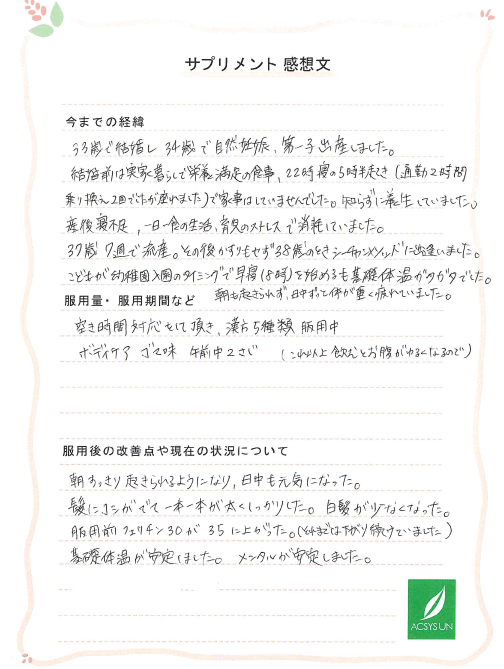 サプリメント 感想文
今までの経緯
33歳で結婚し 34歳で自然妊娠、第一子出産しました。
結婚前は実家暮らしで栄養満点の食事、22時寝の5時半起き(通勤2時間
乗り換え2回でしたが座れました)で家事はしていませんでした。知らずに養生していました。
産後寝不足、一日一食の生活、育児のストレスで消耗していました。
37歳 7週で流産。その後かすりもせず38歳のとき シーチャンメソッドに出逢いました。
こどもが幼稚園入園のタイミングで早寝(8時)を始めるも基礎体温がガタガタでした。
朝も起きられず、日中ずっと体が重く疲れていました。
服用量・服用期間など
空き時間対応をして頂き、漢方5種類 服用中
ボディケア ゴマ味 午前中2さじ (これ以上飲むとお腹がゆるくなるので)
服用後の改善点や現在の状況について
朝すっきり起きられるようになり、日中も元気になった。
髪にコシがでて一本一本が太くしっかりした。白髪が少なくなった。
服用前フェリチン30が35に上がった。(それまでは下がり続けていました)
基礎体温が安定しました。 メンタルが安定しました。
ACSYSUN